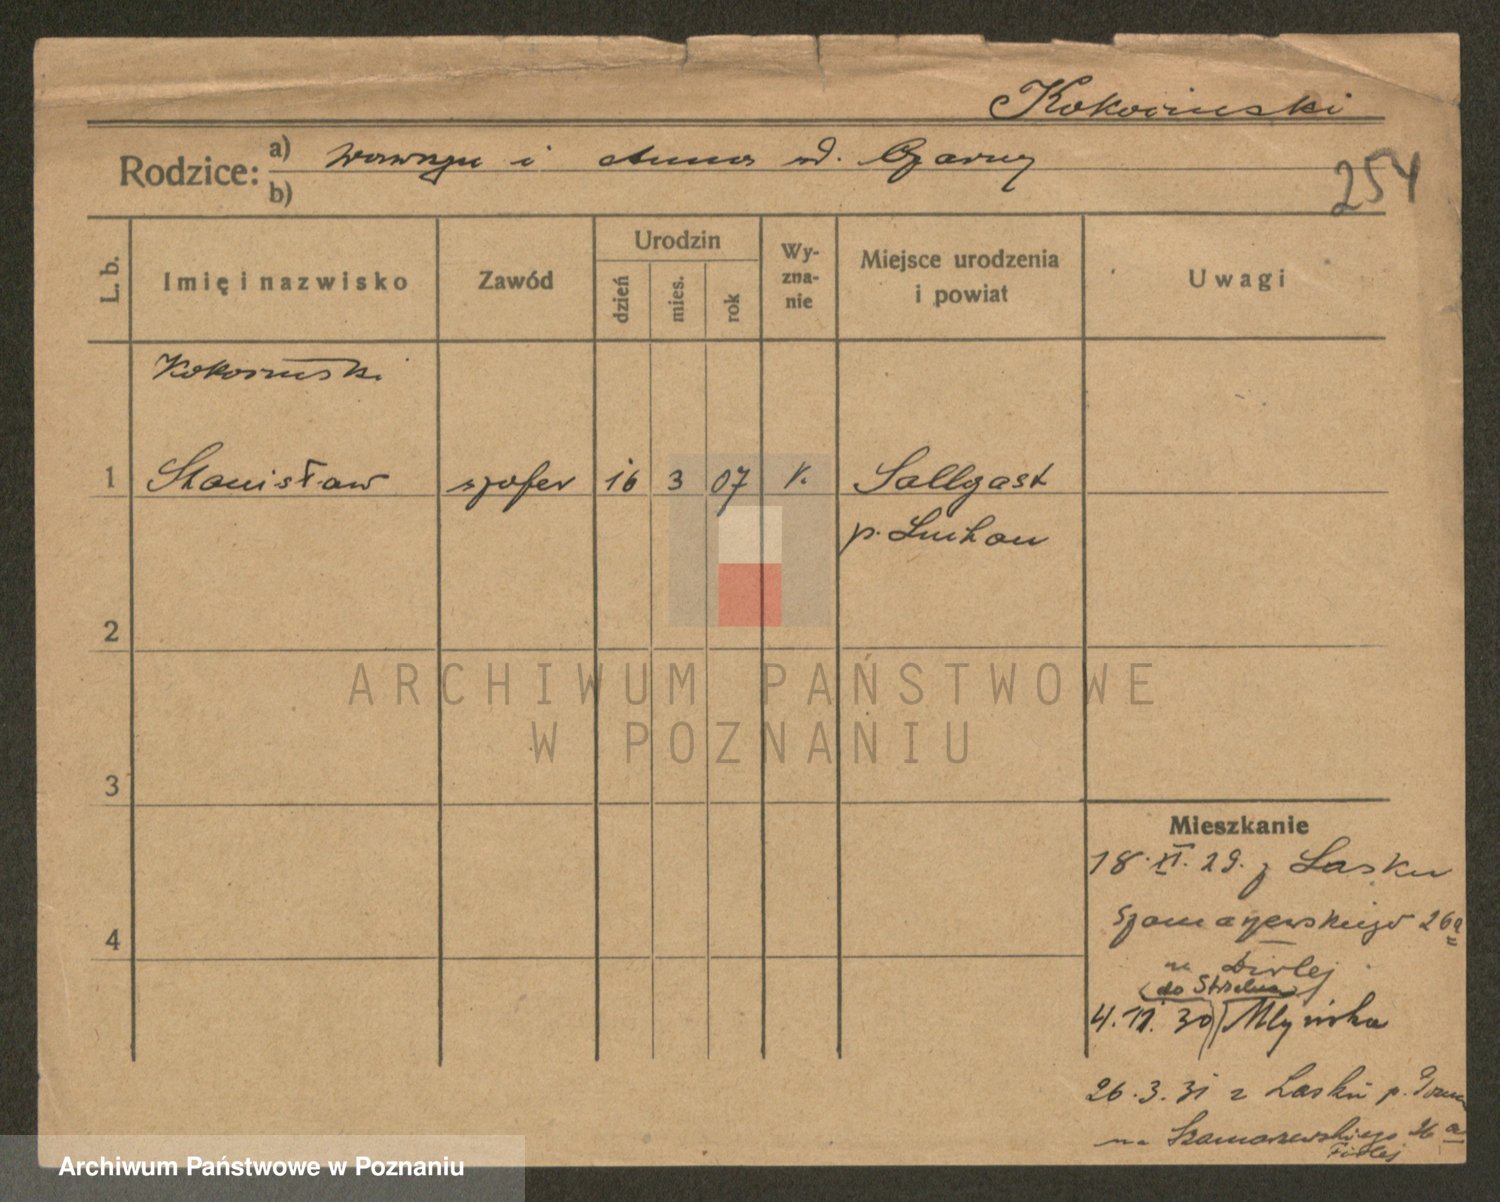 Kokociński
Rodzice: a) Wawrzyn i Anna ur. Czarny
b)
254
L. b.
Imię i nazwisko
Zawód
Urodzin
dzień
mies.
rok
Wy-
zna-
nie
Miejsce urodzenia
i powiat
Uwagi
Kokociński
1 Stanisław szofer 16 3 07 k. Sallgast
p. Luckau
2
3
4
Mieszkanie
18. XI. 29. z Lasku
Szamarzewskiego 26a
(do Strzelna)
4.11.30 Młyńska
26.3.31 z Lasku p.
na Szamarzewskiego 26a
Fidlej
ARCHIWUM PAŃSTWOWE
W POZNANIU
Archiwum Państwowe w Poznaniu